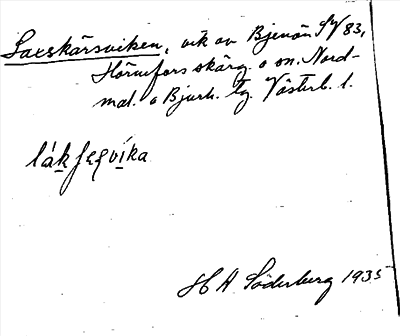 Laxskärsviken, vik av Bjenön SV 83,
Hörnefors skärg. o sn. Nord-
mal. o Bjurh. tg. Västerb. l.
H A Söderberg 1935